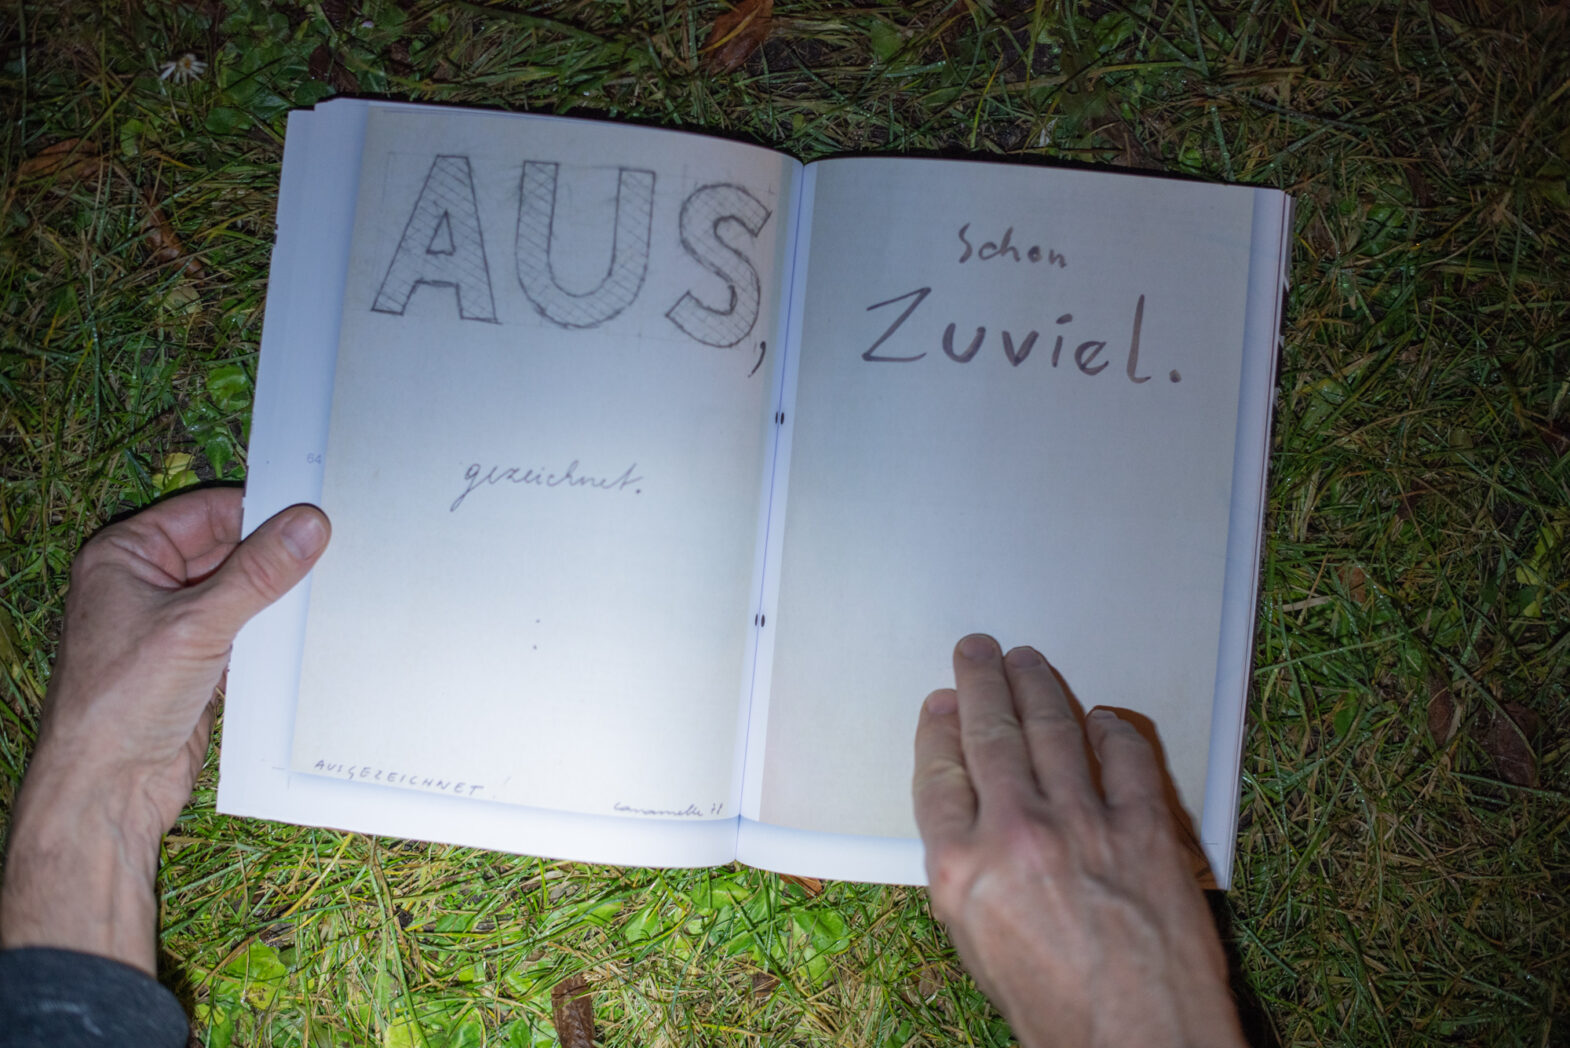 AUS,
gezeichnet.
AUSGEZEICHNET
64
schon
Zuviel.